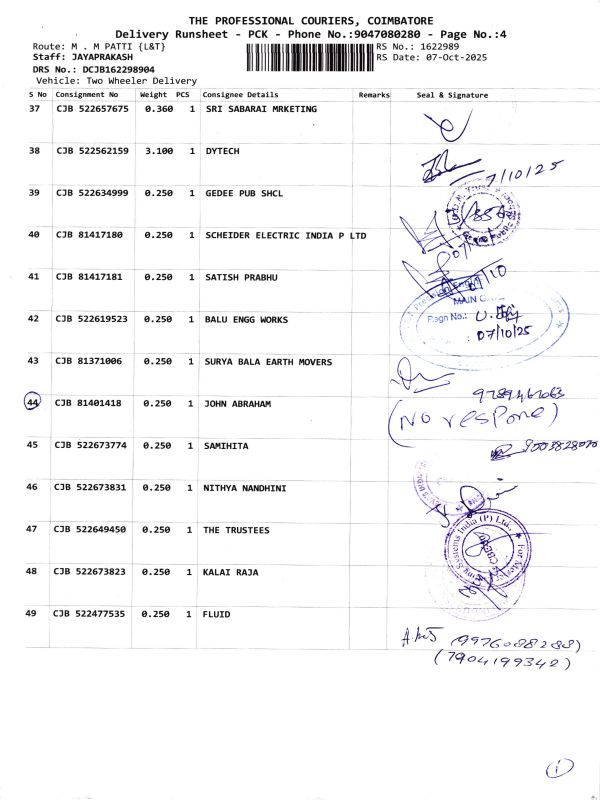 THE PROFESSIONAL COURIERS, COIMBATORE
Delivery Runsheet - PCK - Phone No.:9047080280 - Page No.:4
Route: M . M PATTI {L&T} RS No.: 1622989
Staff: JAYAPRAKASH RS Date: 07-Oct-2025
DRS No.: DCJB162298904
Vehicle: Two Wheeler Delivery
S No Consignment No Weight PCS Consignee Details Remarks Seal & Signature
37 CJB 522657675 0.360 1 SRI SABARAI MRKETING
38 CJB 522562159 3.100 1 DYTECH
7/10/25
39 CJB 522634999 0.250 1 GEDEE PUB SHCL
40 CJB 81417180 0.250 1 SCHEIDER ELECTRIC INDIA P LTD
41 CJB 81417181 0.250 1 SATISH PRABHU
MAIN
42 CJB 522619523 0.250 1 BALU ENGG WORKS
Regn No.:
07/10/25
43 CJB 81371006 0.250 1 SURYA BALA EARTH MOVERS
44 CJB 81401418 0.250 1 JOHN ABRAHAM
(No respone)
45 CJB 522673774 0.250 1 SAMIHITA
46 CJB 522673831 0.250 1 NITHYA NANDHINI
47 CJB 522649450 0.250 1 THE TRUSTEES
Systems India (P) Ltd.,
48 CJB 522673823 0.250 1 KALAI RAJA
49 CJB 522477535 0.250 1 FLUID
(9976088288)
(7904199342)
1